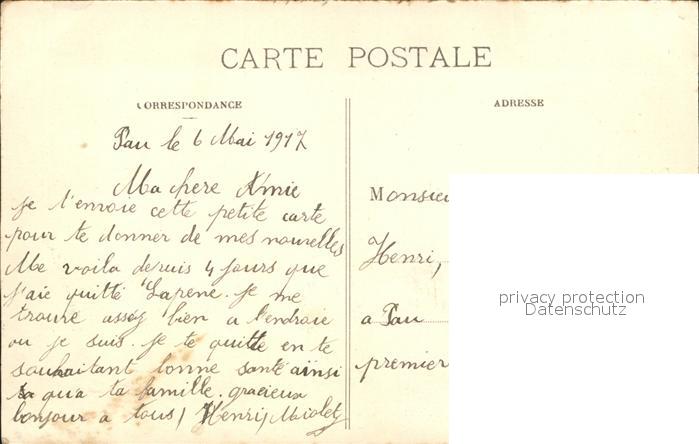 CARTE POSTALE
CORRESPONDANCE
ADRESSE
Pau le 6 Mai 1917
Ma chere Amie
je t'envoie cette petite carte
pour te donner de mes nouvelles
Me voila depuis 4 jours que
j'aie quitté Lapene. je me
trouve assez bien a l'endroie
ou je suis. je te quitte en te
souhaitant bonne santé ainsi
qu'a ta famille. gracieux
bonjour a tous / Henri
Monsieu
Henri,
a Pau
premier
privacy protection
Datenschutz